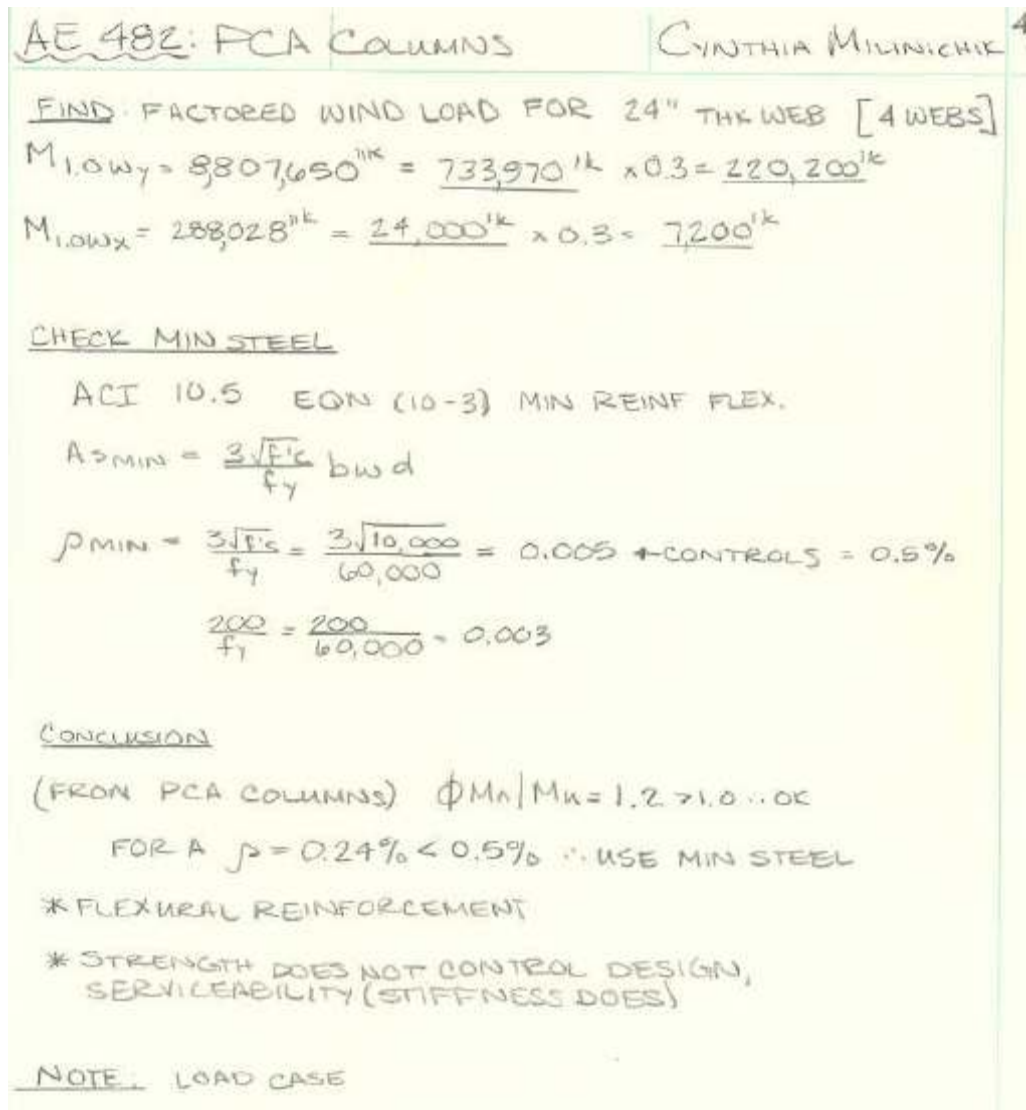 AE 482: PCA COLUMNS CYNTHIA MILINICHIK 4
FIND: FACTORED WIND LOAD FOR 24" THK WEB [4 WEBS]
M1.0Wy = 8,807,650"k = 733,970'k x0.3 = 220,200'k
M1.0Wx = 288,028"k = 24,000'k x 0.3 = 7,200'k
CHECK MIN STEEL
ACI 10.5 EQN (10-3) MIN REINF FLEX.
AsMIN = 3√f'c/fy bwd
ρMIN = 3√f'c/fy = 3√10,000/60,000 = 0.005 ←CONTROLS = 0.5%
200/fy = 200/60,000 = 0.003
CONCLUSION
(FROM PCA COLUMNS) ϕMn/Mu = 1.2 >1.0 ∴ OK
FOR A ρ = 0.24% < 0.5% ∴ USE MIN STEEL
* FLEXURAL REINFORCEMENT
* STRENGTH DOES NOT CONTROL DESIGN,
SERVICEABILITY (STIFFNESS DOES)
NOTE: LOAD CASE